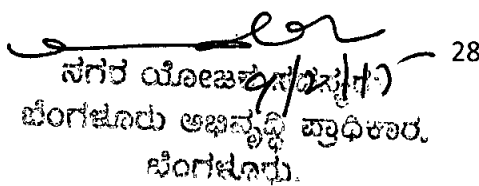 28
ನಗರ ಯೋಜಕ ಸದಸ್ಯರು
ಬೆಂಗಳೂರು ಅಭಿವೃದ್ಧಿ ಪ್ರಾಧಿಕಾರ.
ಬೆಂಗಳೂರು.